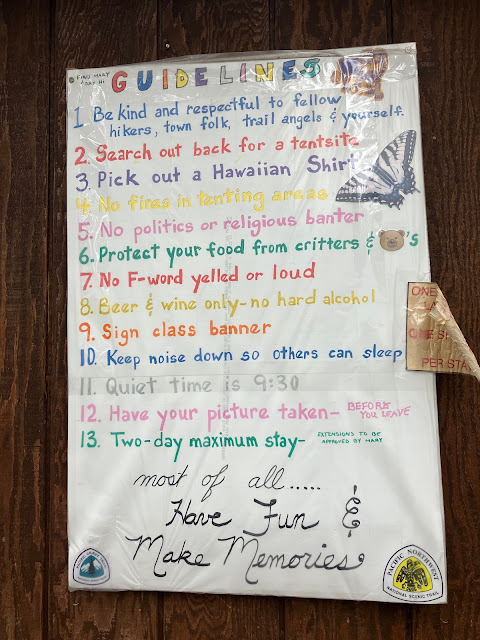 FIND MARY
& SAY HI
GUIDELINES
1. Be kind and respectful to fellow
hikers, town folk, trail angels & yourself.
2. Search out back for a tentsite
3. Pick out a Hawaiian Shirt
4. No fires in tenting areas
5. No politics or religious banter
6. Protect your food from critters & 's
7. No F-word yelled or loud
8. Beer & wine only-no hard alcohol
9. Sign class banner
10. Keep noise down so others can sleep
11. Quiet time is 9:30
12. Have your picture taken- BEFORE
YOU LEAVE
13. Two-day maximum stay- EXTENSIONS TO BE
APPROVED BY MARY
most of all.....
Have Fun &
Make Memories
ONE
PER STA
PACIFIC NORTHWEST
NATIONAL SCENIC TRAIL